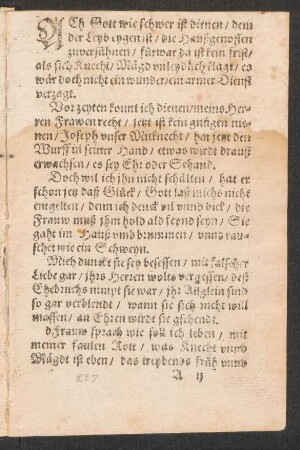 ACh Gott wie schwer ist dienen / dem
der Leybeygen ist / die Haußgenossen
zuversühnen / fürwar da ist kein frist /
als sich Knecht / Mägd vnleydlich klagt / es
wär doch nicht ein wunder / ein armer Dienst
verzagt.
Vor zeyten konnt ich dienen / meins Her-
ren Frawen recht / jetzt ist kein gnügen
nen / Joseph vnser Mitknecht / hat jetzt den
Wurff in seiner Hand / etwas wirdt drauß
erwachsen / es sey Ehr oder Schand.
Doch wil ich jhn nicht schälten / hat er
schon jetz daß Glück / Gott laß michs nicht
entgelten / denn ich denck vil vnnd dick / die
Frauw muß jhm hold ald feynd seyn / Sie
gaht im Hauß vmb brummen / vnnd rau-
schet wie ein Schweyn.
Mich dunckt sie sey besessen / mit falscher
Liebe gar / jhrs Herren wolts vergessen / deß
Ehebruchs nimpt sie war / jhr Aüglein sind
so gar verblendt / wann sie sich nicht will
massen / an Ehren wirdt sie gschendt.
dFrauw sprach wie soll ich leben / mit
meiner faulen Rott / was Knecht vnnd
Mägdt ist eben / das treybends früh vnnd
A ij
237